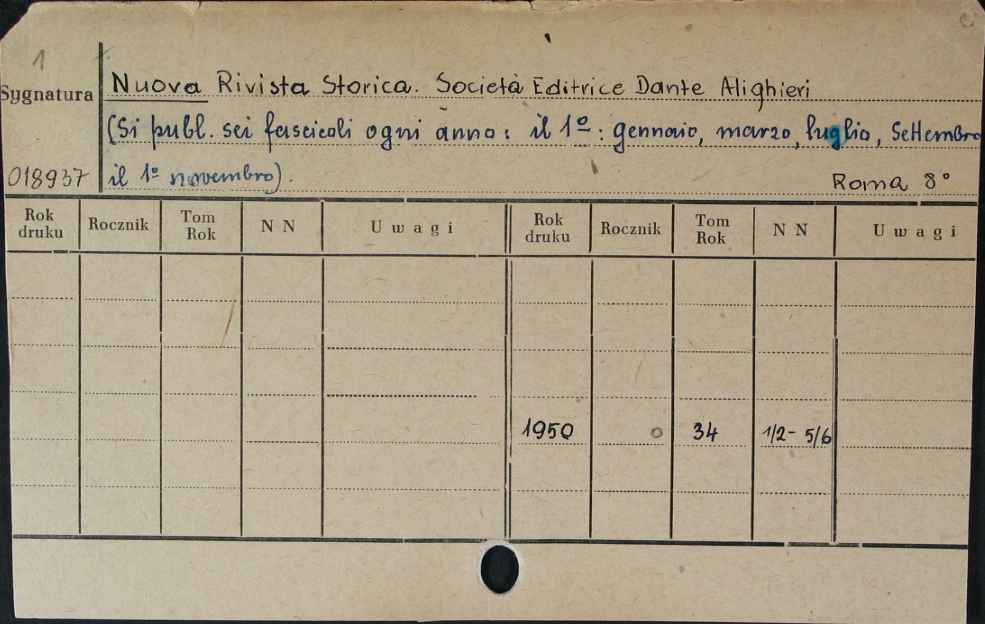 1
Sygnatura
Nuova Rivista Storica. Società Editrice Dante Alighieri
(Si publ. sei fascicoli ogni anno: il 1º: gennaio, marzo, luglio, settembro
018937 il 1º novembro).
Roma 8°
Rok druku Rocznik Tom Rok N N Uwagi Rok druku Rocznik Tom Rok N N Uwagi
1950 34 1/2- 5/6